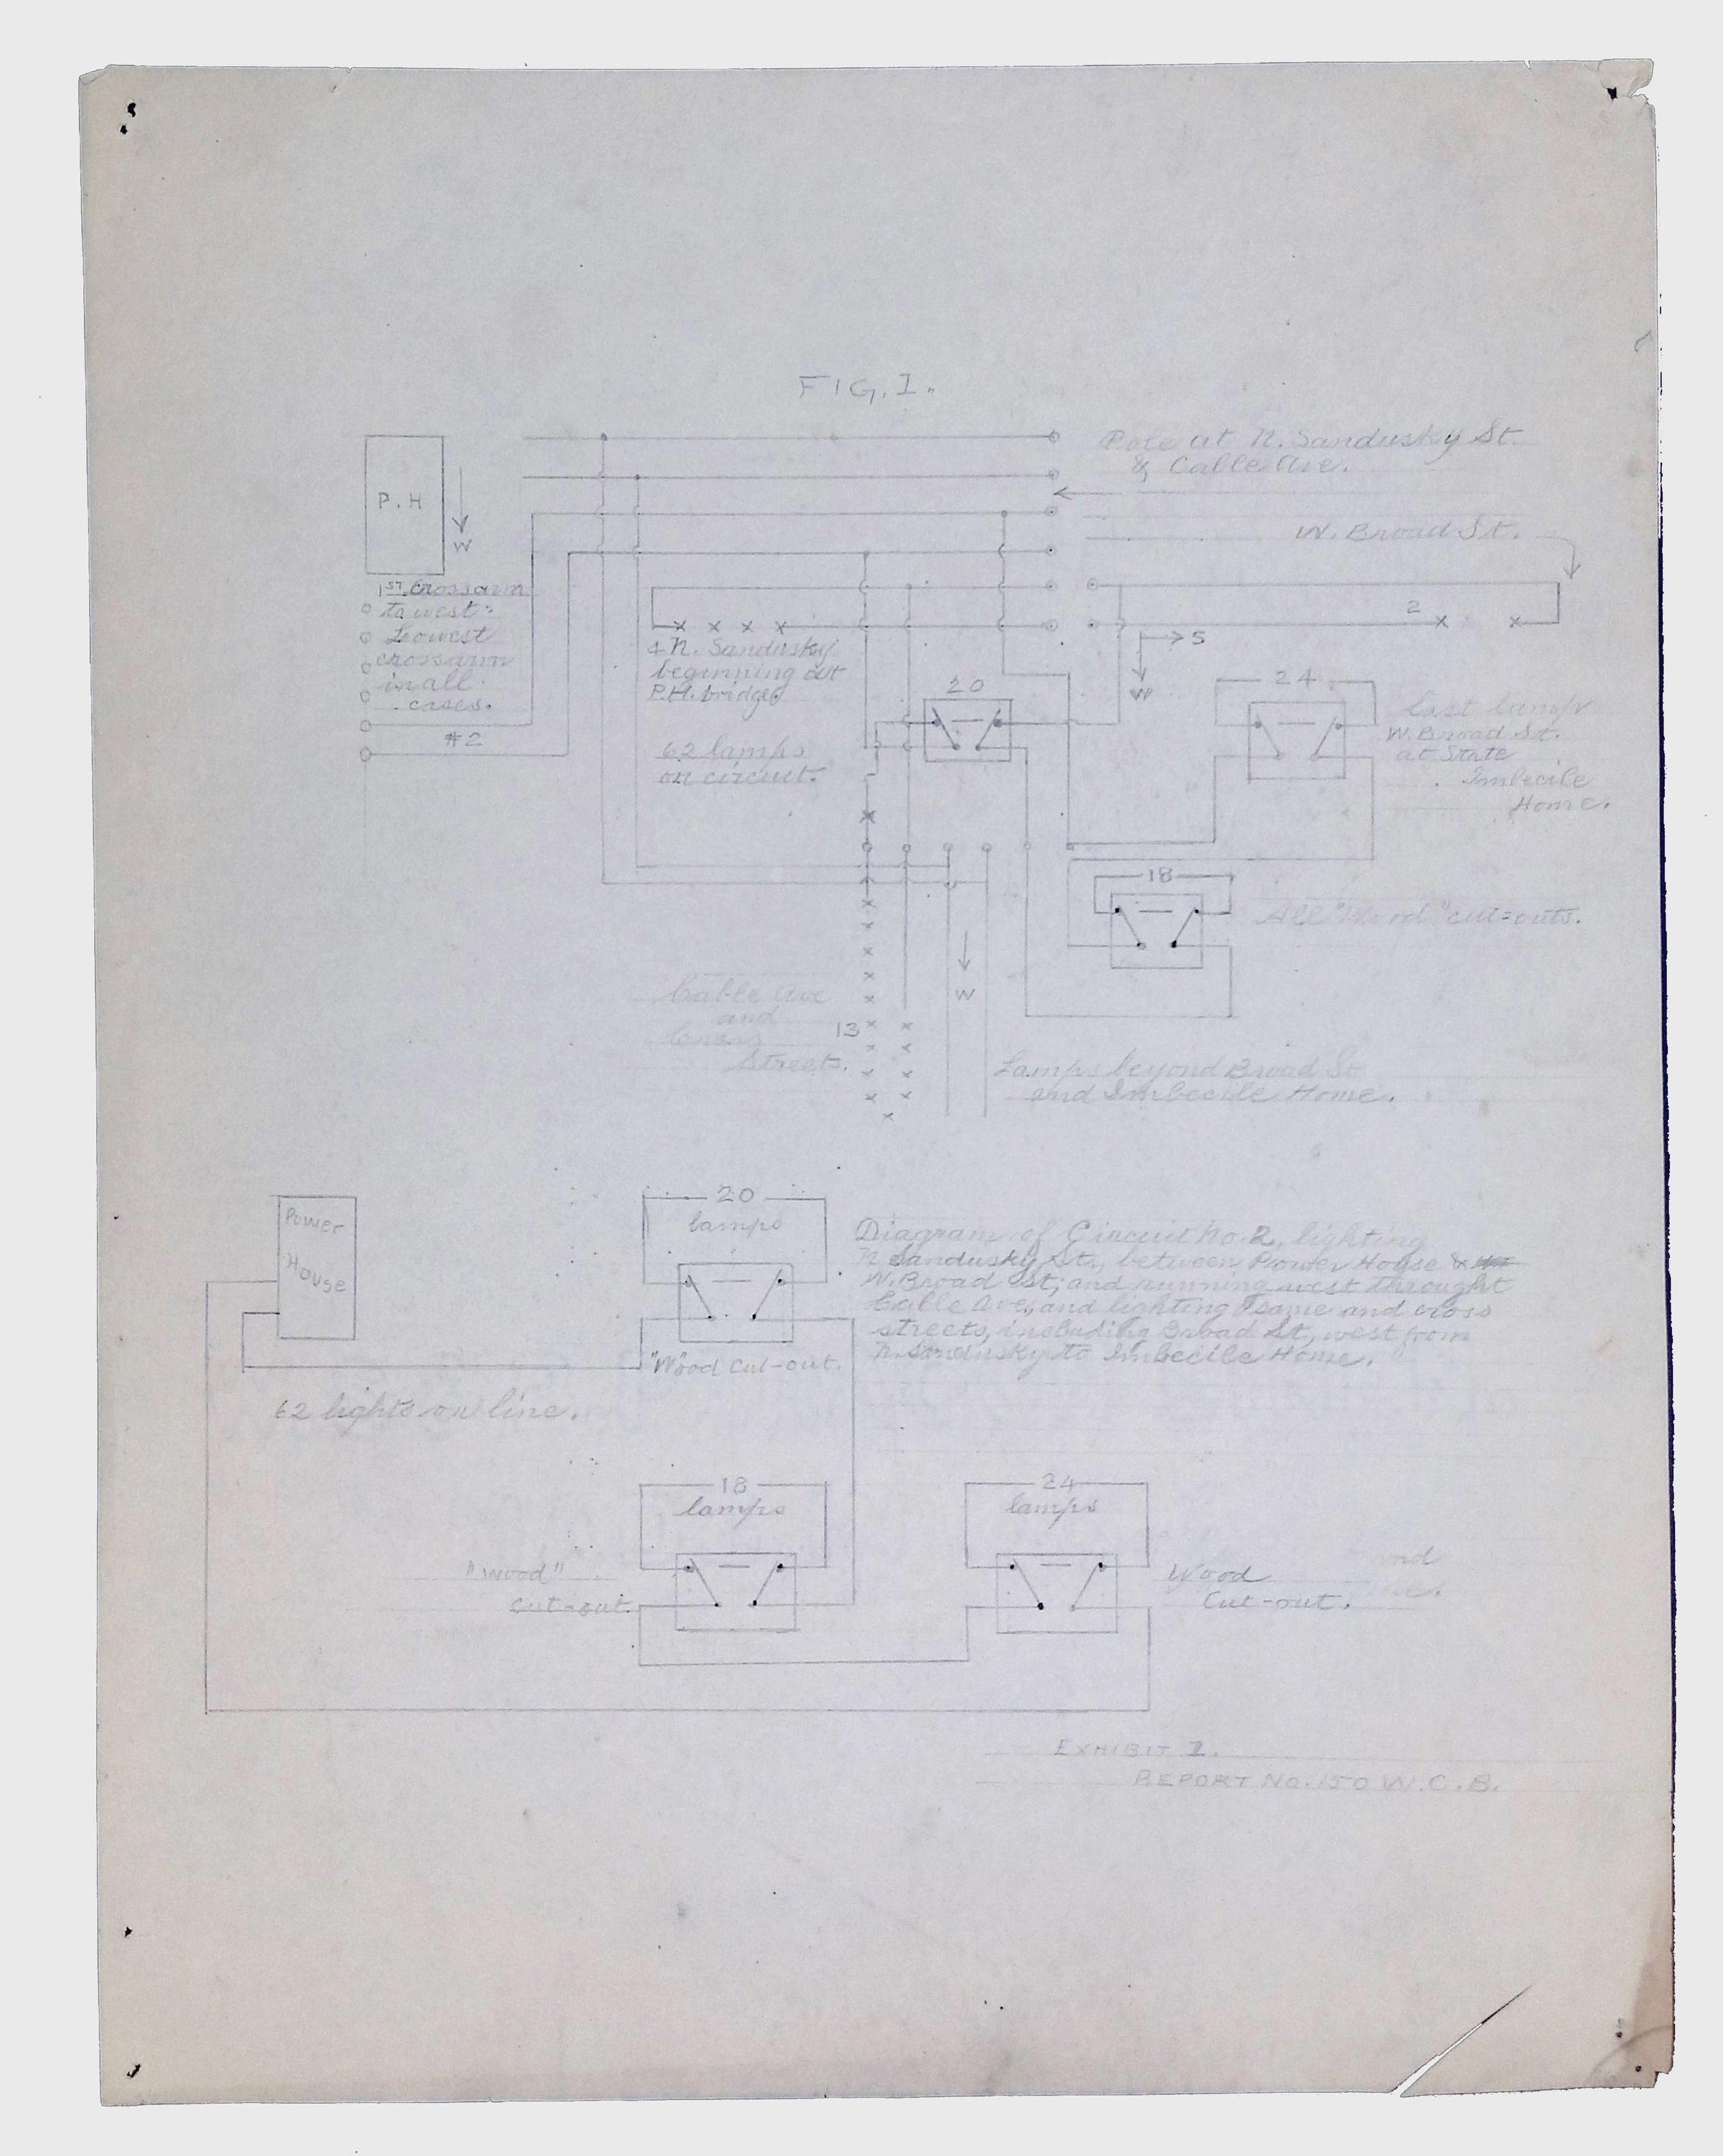 FIG. I.
Pole at N. Sandusky St.
& Cable Ave.
P.H
W
W. Broad St.
1ST Crossarm
to west:
Lowest
crossarm
in all
cases.
#2
4 N. Sandusky
beginning at
P.H. bridge
62 lamps
on circuit.
2
S
W
20
24
Last lamp
W. Broad St.
at State
Imbecile
Home.
18
All "Wood" cut=outs.
W
Cable Ave
and
Cross
Streets.
13
Lamps beyond Broad St
and Imbecile Home.
Power
House
20
lamps
"Wood Cut-out.
Diagram of Circuit No. 2, lighting
N Sandusky St., between Power House &
W. Broad St; and running west throught
Cable Ave, and lighting same and cross
streets, including Broad St, west from
N. Sandusky to Imbecile Home.
62 lights on line.
18
lamps
"Wood"
Cut-out.
24
lamps
Wood
Cut-out.
EXHIBIT I.
REPORT NO. 150 W.C.B.